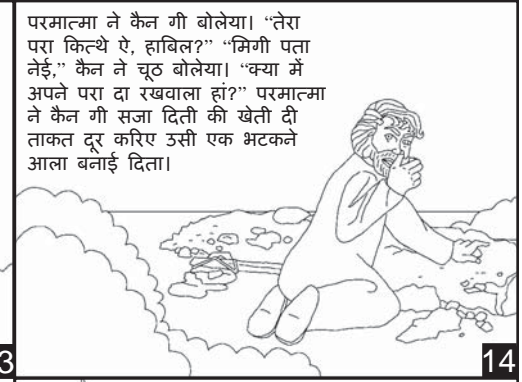 परमात्मा ने कैन गी बोलेया। “तेरा
परा कित्थे ऐ, हाबिल?” “मिगी पता
नेई,” कैन ने चूठ बोलेया। “क्या में
अपने परा दा रखवाला हां?” परमात्मा
ने कैन गी सजा दिती की खेती दी
ताकत दूर करिए उसी एक भटकने
आला बनाई दिता।
3
14